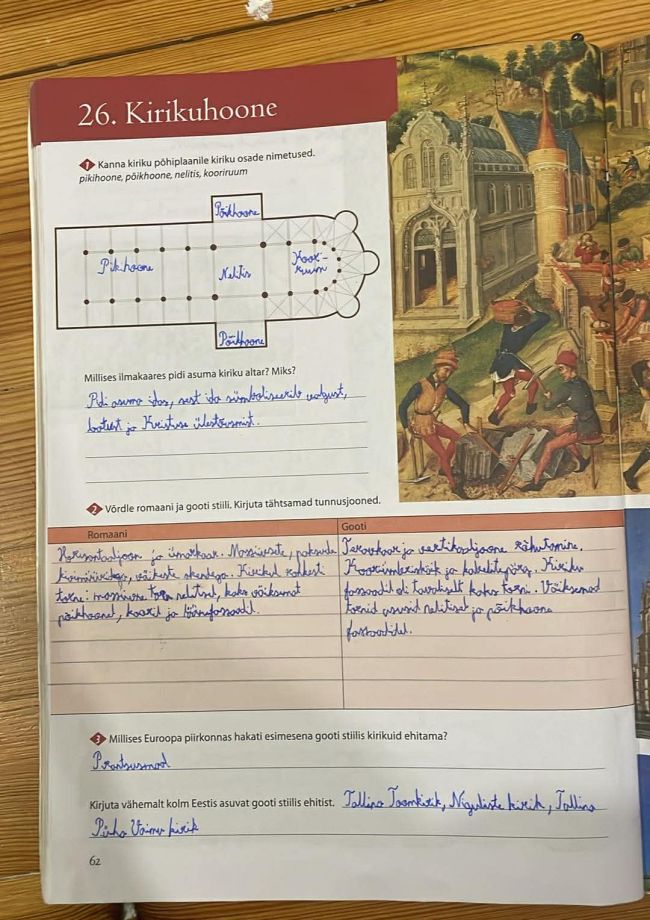 26. Kirikuhoone
1 Kanna kiriku põhiplaanile kiriku osade nimetused.
pikihoone, põikhoone, nelitis, kooriruum
Põikhoone
Pikihoone
Nelitis
Koor-
ruum
Põikhoone
Millises ilmakaares pidi asuma kiriku altar? Miks?
Pidi asuma idas, sest ida sümboliseerib valgust,
lootust ja Kristuse ülestõusmist.
2 Võrdle romaani ja gooti stiili. Kirjuta tähtsamad tunnusjooned.
Romaani
Gooti
Horisontaaljoon ja ümarkaar. Massiivsete, paksude
kivimüüridega, väikeste akendega. Kirikul rohkesti
torne: massiivne torn nelitisel, kaks väiksemat
põikhoonel, kooril ja läänefassaadil.
Teravkaar ja vertikaaljoone rõhutamine.
Kooriümbriskäik ja kabelitepärg. Kiriku
fassaadil oli tavaliselt kaks torni. Väiksemad
tornid asusid nelitisel ja põikhoone
fassaadidel.
3 Millises Euroopa piirkonnas hakati esimesena gooti stiilis kirikuid ehitama?
Prantsusmaal
Kirjuta vähemalt kolm Eestis asuvat gooti stiilis ehitist. Tallina Toomkirik, Niguliste kirik, Tallina
Püha Vaimu kirik
62